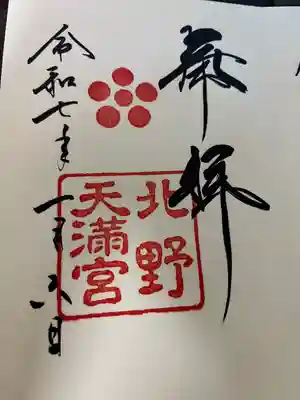 奉拝
北野
天満宮
令和七年
一月六日